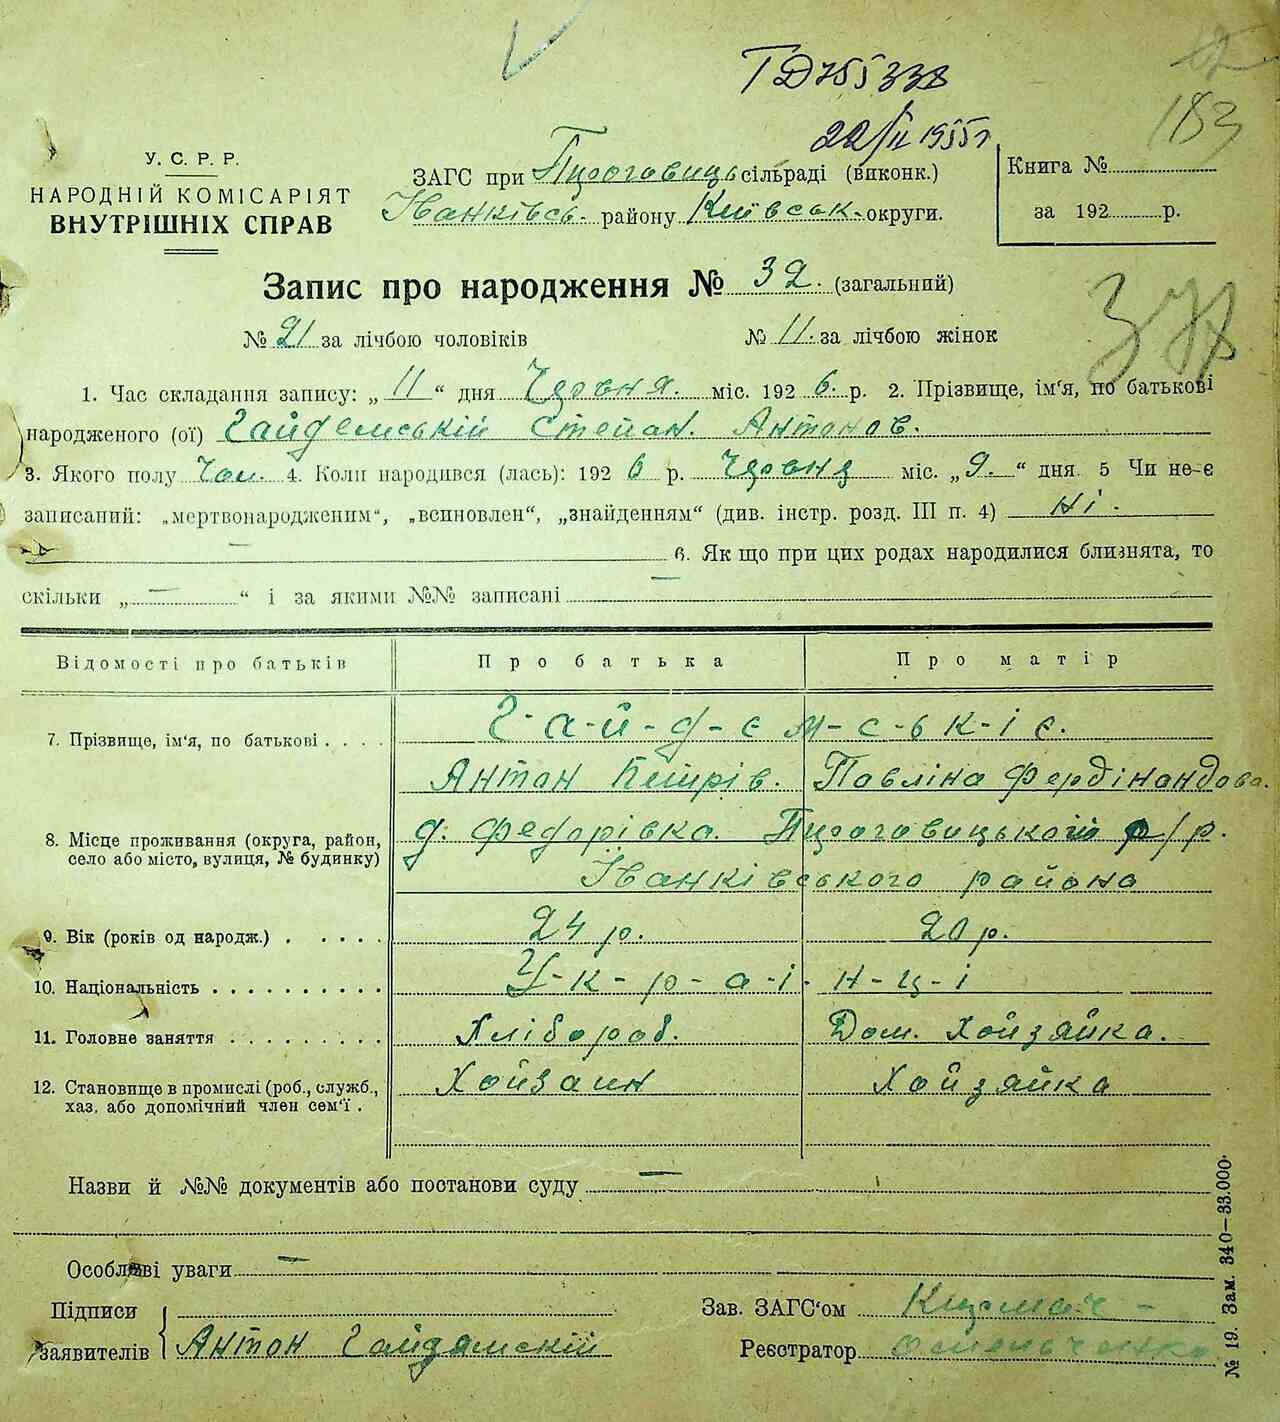 183
22/II 1955 г
У. С. Р. Р.
НАРОДНІЙ КОМІСАРІЯТ
ВНУТРІШНІХ СПРАВ
ЗАГС при сільраді (виконк.)
Іванківсь. району Київськ. округи.
Книга №
за 192 р.
Запис про народження № 32. (загальний)
№ 21 за лічбою чоловіків
№ 11. за лічбою жінок
1. Час складання запису: „ 11 “ дня Червня. міс. 192 6. р. 2. Прізвище, ім'я, по батькові
народженого (ої) Гайдемській Степан. Антонов.
3. Якого полу Чол. 4. Коли народився (лась): 192 6 р. Червня міс. „ 9. “ дня. 5 Чи не-є
записаний: „мертвонародженим“, „всиновлен“, „знайденням“ (див. інстр. розд. III п. 4) Ні.
6. Як що при цих родах народилися близнята, то
скільки „ — “ і за якими №№ записані —
Відомості про батьків
Про батька
Про матір
7. Прізвище, ім'я, по батькові . . . .
Г-а-й-д-є-м-с-ь-к-і-є.
Антон Петрів. Павліна Фердінандова.
8. Місце проживання (округа, район, село або місто, вулиця, № будинку)
д. Федорівка. р/р.
Іванківського района
9. Вік (років од народж.) . . . . . 24 р. 20 р.
10. Національність . . . . . . . . . . У-к-р-а-ї-н-ц-і
11. Головне заняття . . . . . . . . . Хлібороб. Дом. Хойзяйка.
12. Становище в промислі (роб., служб., хаз. або допомічний член сем'ї . Хойзаин Хойзяйка
Назви й №№ документів або постанови суду —
Особливі уваги —
Підписи
заявителів Антон Гайдамскій
Зав. ЗАГС'ом
Реєстратор
№ 19. Зам. 340—33.000.